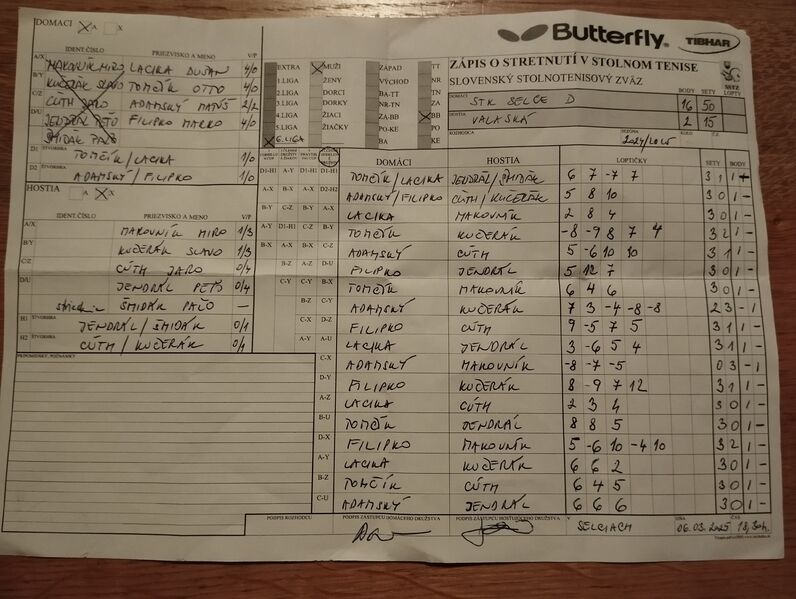 DOMACI X A X
Butterfly TIBHAR
IDENT.ČÍSLO PRIEZVISKO A MENO V/P
ZÁPIS O STRETNUTÍ V STOLNOM TENISE
SLOVENSKÝ STOLNOTENISOVÝ ZVÄZ
SSTZ
A/X MAKOVNÍK MIRO LACIKA DUŠAN 4/0
B/Y KUČERÁK SLAVO TOMČÍK OTTO 4/0
C/Z CÚTH JARO ADAMSKÝ MATÚŠ 2/2
D/U JENDRÁL PEŤO FILIPKO MARKO 4/0
ŠMIDÁK PAĽO
D1 ŠTVORHRA TOMČÍK/LACIKA 1/0
D2 ADAMSKÝ/FILIPKO 1/0
EXTRA X MUŽI ZÁPAD TT
1.LIGA ŽENY VÝCHOD NR
2.LIGA DORCI BA-TT
3.LIGA DORKY NR-TN ZA
4.LIGA ŽIACI ZA-BB X BB
5.LIGA ŽIAČKY PO-KE PO
X 6.LIGA BA KE
BODY SETY LOPTY
DOMÁCI STK SELCE D 16 50
HOSTIA VALASKÁ 2 15
ROZHODCA SEZÓNA 2024/2025 KOLO Č.
HOSTIA A X X
IDENT.ČÍSLO PRIEZVISKO A MENO V/P
A/X MAKOVNÍK MIRO 1/3
B/Y KUČERÁK SLAVO 1/3
C/Z CÚTH JARO 0/4
D/U JENDRÁL PEŤO 0/4
ŠMIDÁK PAĽO —
H1 ŠTVORHRA JENDRÁL/ŠMIDÁK 0/1
H2 CÚTH/KUČERÁK 0/1
PRIPOMIENKY, POZNÁMKY
DOMÁCI HOSTIA LOPTIČKY SETY BODY
D1-H1 A-Y D1-H1 D1-H1 TOMČÍK/LACIKA JENDRÁL/ŠMIDÁK 6 7 -7 7 3 1 1 -
A-X B-X A-X D2-H2 ADAMSKÝ/FILIPKO CÚTH/KUČERÁK 5 8 10 3 0 1 -
B-Y C-Z B-Y A-X LACIKA MAKOVNÍK 2 8 4 3 0 1 -
A-Y D1-H1 C-Z B-Y TOMČÍK KUČERÁK -8 -9 8 7 4 3 2 1 -
B-X A-X B-X C-Z ADAMSKÝ CÚTH 5 -6 10 10 3 1 1 -
B-Z A-Z D-U FILIPKO JENDRÁL 5 12 7 3 0 1 -
C-Y C-Y B-X TOMČÍK MAKOVNÍK 6 4 6 3 0 1 -
B-Z C-Y ADAMSKÝ KUČERÁK 7 3 -4 -8 -8 2 3 - 1
C-X D-Z FILIPKO CÚTH 9 -5 7 5 3 1 1 -
A-Y A-U LACIKA JENDRÁL 3 -6 5 4 3 1 1 -
C-X ADAMSKÝ MAKOVNÍK -8 -7 -5 0 3 - 1
D-Y FILIPKO KUČERÁK 8 -9 7 12 3 1 1 -
A-Z LACIKA CÚTH 2 3 4 3 0 1 -
B-U TOMČÍK JENDRÁL 8 8 5 3 0 1 -
D-X FILIPKO MAKOVNÍK 5 -6 10 -4 10 3 2 1 -
A-Y LACIKA KUČERÁK 6 6 2 3 0 1 -
B-Z TOMČÍK CÚTH 6 4 5 3 0 1 -
C-U ADAMSKÝ JENDRÁL 6 6 6 3 0 1 -
PODPIS ROZHODCU PODPIS ZÁSTUPCU DOMÁCEHO DRUŽSTVA PODPIS ZÁSTUPCU HOSŤUJÚCEHO DRUŽSTVA V SELCIACH DŇA 06.03.2025 ČAS 18,30h.